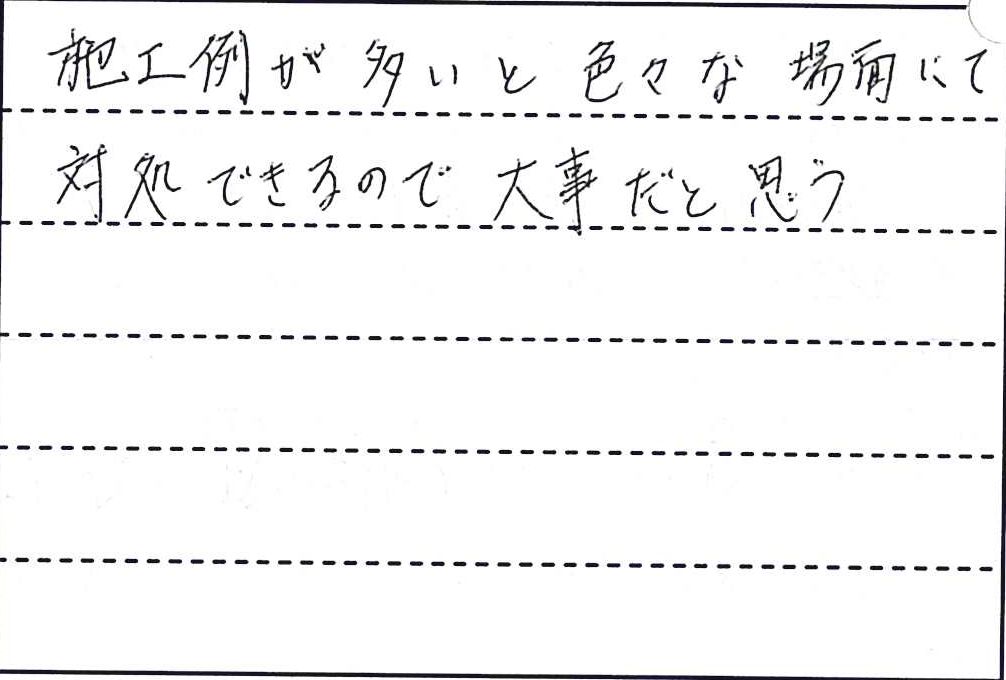 施工例が多いと色々な場面にて
対処できるので大事だと思う